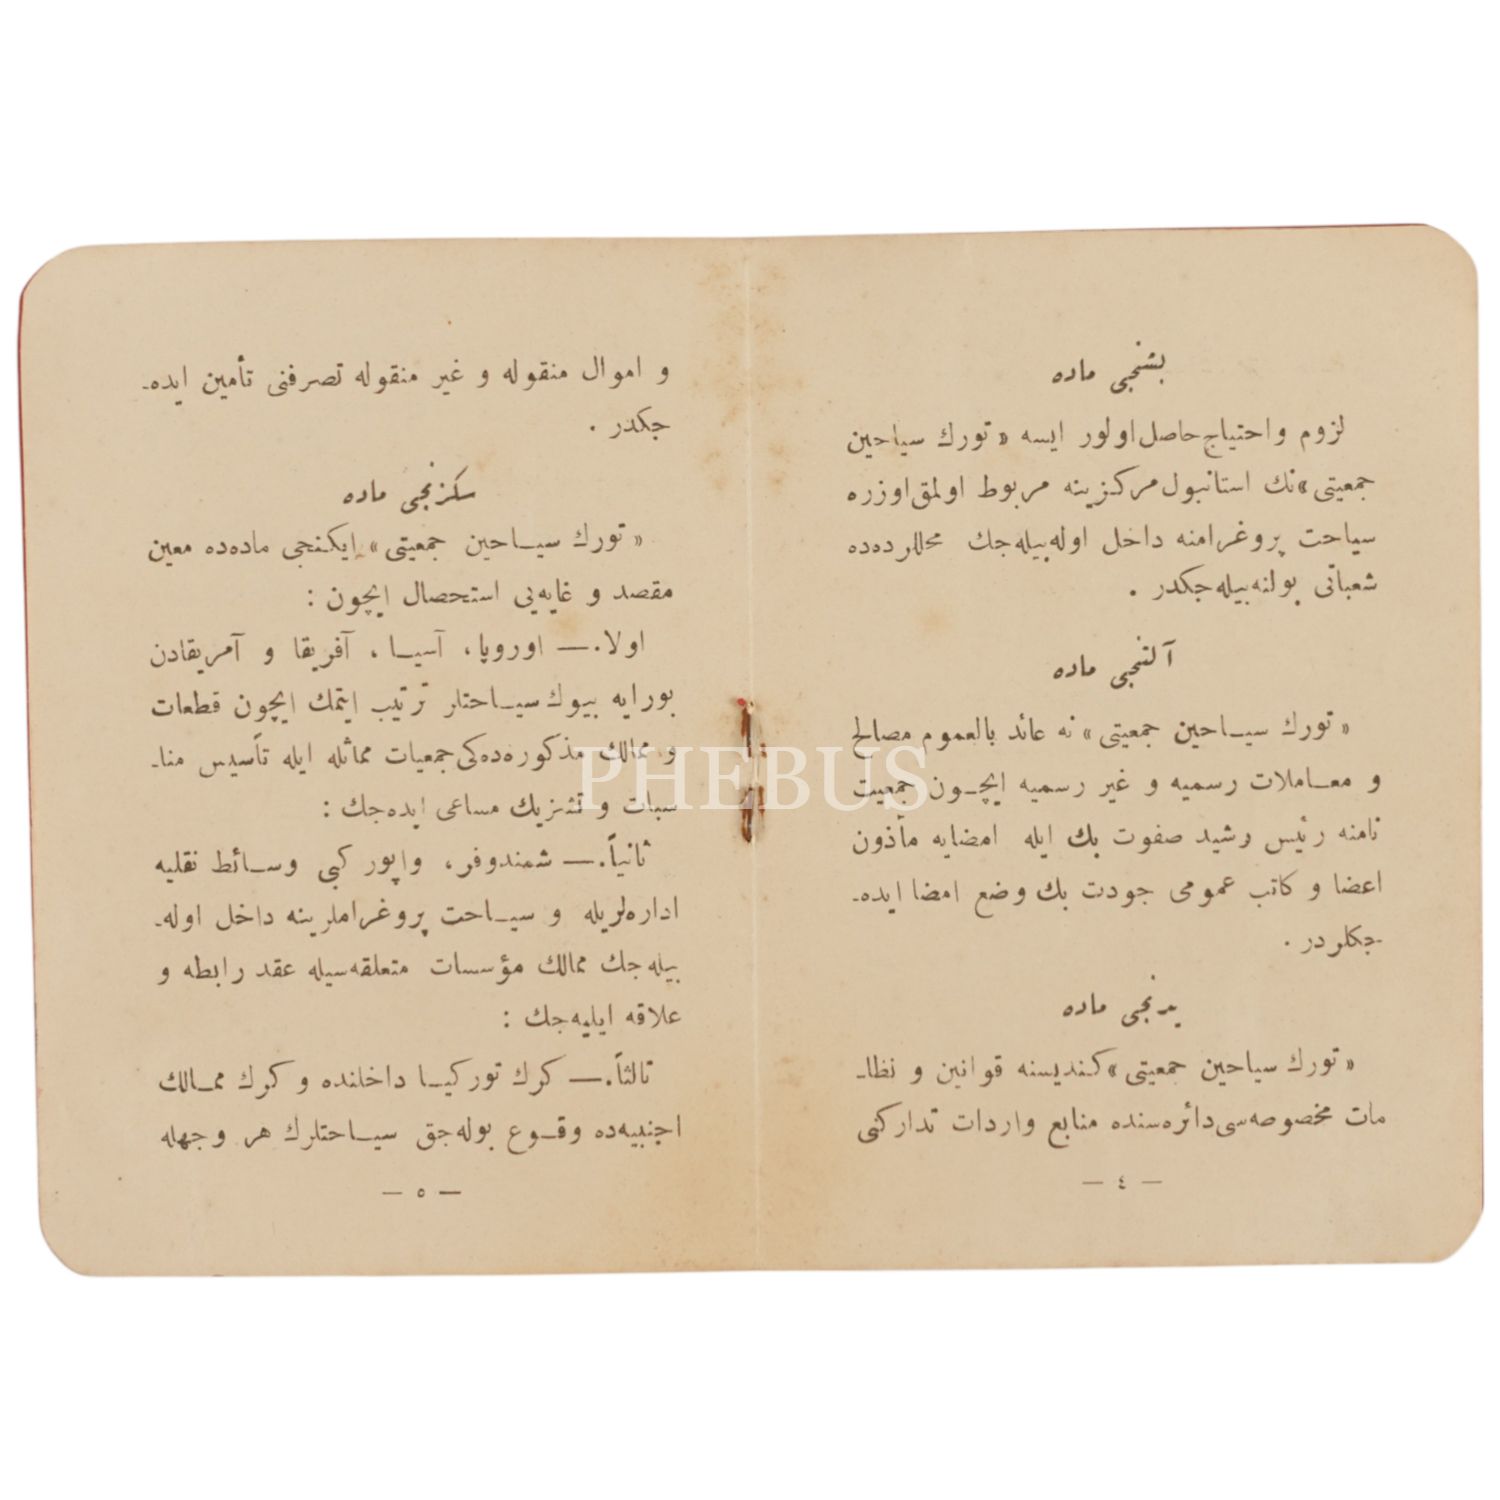 بشنجی ماده
لزوم واحتیاج حاصل اولور ایسه « تورك سیاحین
جمعیتی »نك استانبول مرکزینه مربوط اولمق اوزره
سیاحت پروغرامنه داخل اوله‌بیله‌جك محللرده‌ده
شعباتی بولنه‌بیله‌جکدر .
آلتنجی ماده
« تورك سیـاحین جمعیتی » نه عائد بالعموم مصالح
و معـاملات رسمیه و غیر رسمیه ایچـون جمعیت
نامنه رئیس رشید صفوت بك ایله امضایه مأذون
اعضا و کاتب عمومی جودت بك وضع امضا ایده‌ـ
جکلردر .
یدنجی ماده
« تورك سیاحین جمعیتی » کندیسنه قوانین و نظاـ
مات مخصوصه‌سی دائره‌سنده منابع واردات تدارکنی
— ٤ —
و اموال منقوله و غیر منقوله تصرفنی تأمین ایده‌ـ
جکدر .
سکزنجی ماده
« تورك سیـاحین جمعیتی » ایکنجی ماده‌ده معین
مقصد و غایه‌یی استحصال ایچون :
اولا.— اوروپا، آسیـا ، آفریقا و آمریقادن
بورایه بیوك سیـاحتلر ترتیب ایتمك ایچون قطعات
و ممالك مذکوره‌ده‌کی جمعیات مماثله ایله تأسیس مناـ
سبات و تشریك مساعی ایده‌جك :
ثانیاً.— شمندوفر، واپور کبی وسـائط نقلیه
اداره‌لریله و سیـاحت پروغراملرینه داخل اوله‌ـ
بیله‌جك ممالك مؤسسات متعلقه‌سیله عقد رابطه و
علاقه ایلیه‌جك :
ثالثاً.— کرك تورکیـا داخلنده و کرك ممـالك
اجنبیه‌ده وقـوع بوله‌جق سیـاحتلرك هر وجهله
— ٥ —
PHEBUS